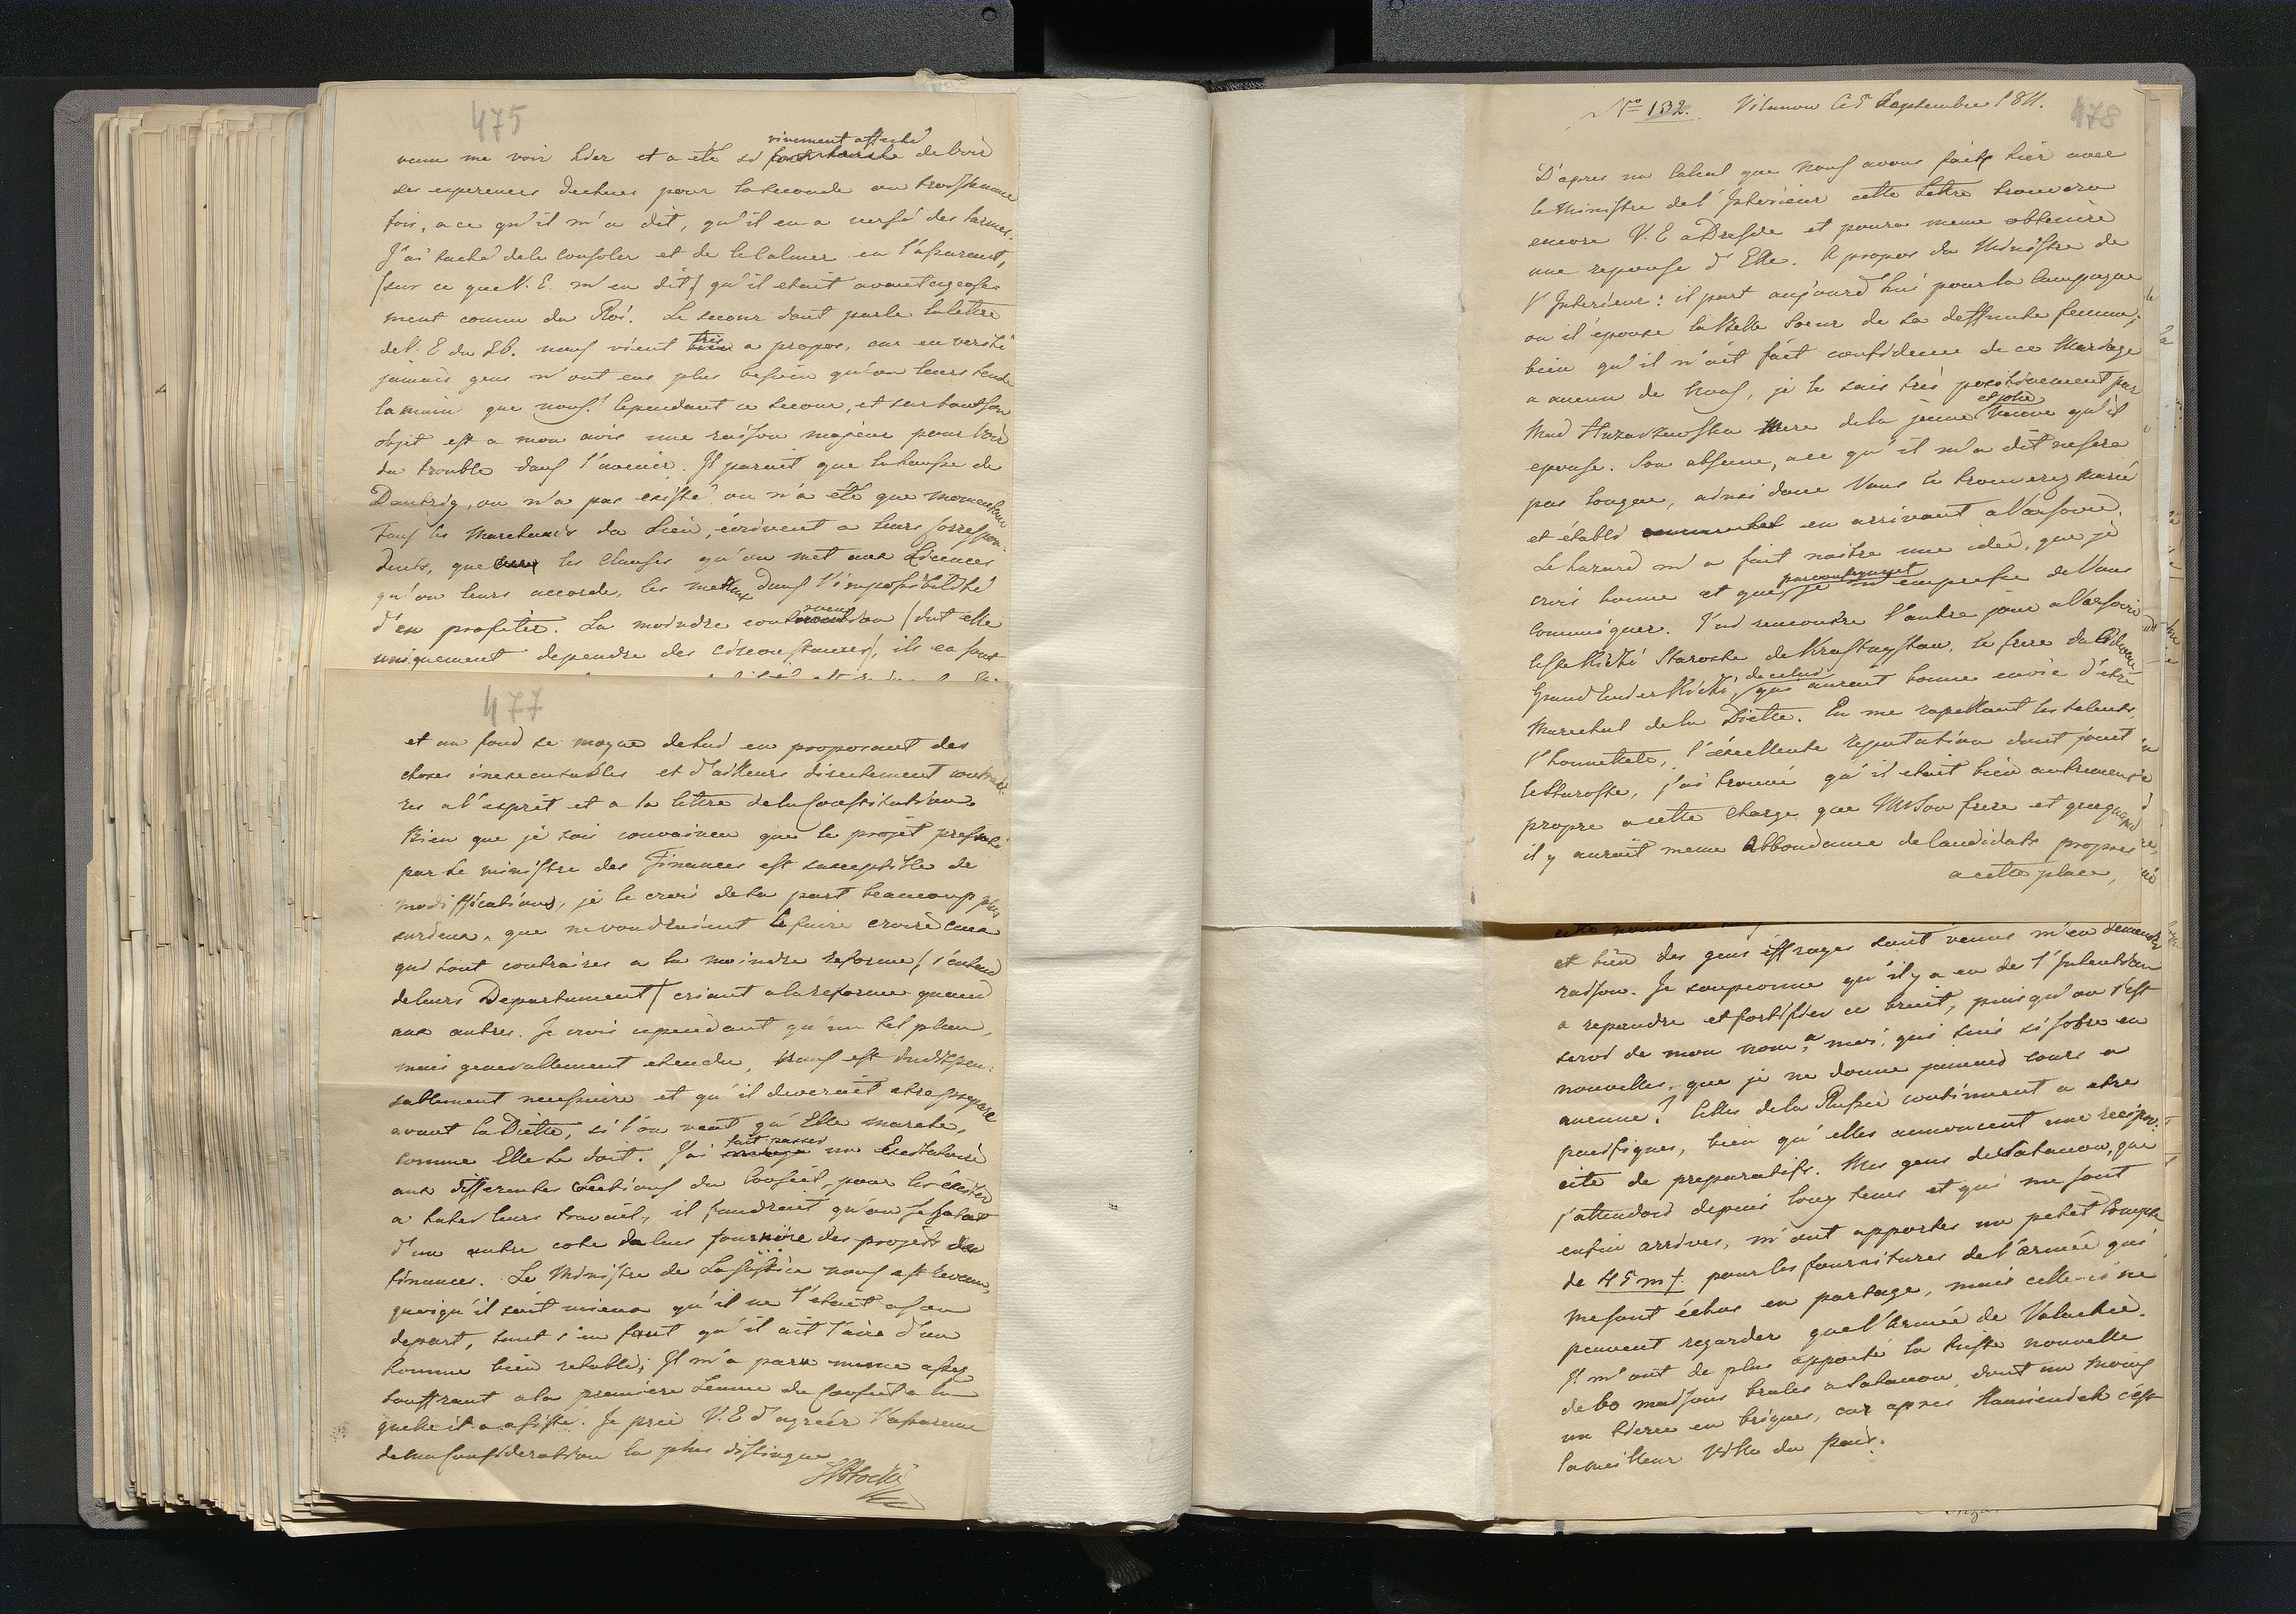 475
vivement affecté
venu me voir hier et a été si de voir
ses esperences dechues pour la seconde ou troisieme
fois, a ce qu'il m'a dit, qu'il en a versé des larmes.
J'ai taché de le consoler et de le calmer en l'assurant,
(sur ce que V. E. m'en dit) qu'il etait avantageuse
ment connu du Roi. Le secour dont parle la lettre
de V. E du 26. nous vient très a propos, car en verité
jamais gens n'ont eus plus besoin qu'on leurs tende
la main que nous! Cependant ce secour, et surtout son
objet est a mon avis une raison majeur pour voir
du trouble dans l'avenir. Il parait que la hausse de
Dantzig, ou n'a pas existé ou n'a été que momentané
tous les Marchands du Lieu, écrivent a leurs Correspon-
dents, que les Clauses qu'on met aux Licences
qu'on leurs accorde, les mettent dans l'impossibilité
d'en profiter. La moindre contravention (dut elle
uniquement dependre des circonstances), ils en sont
477
et au fond se moque de lui en proposant des
choses inexecutables et d'ailleurs directement contrai-
res a l'esprit et a la lettre de la Constitution.
Bien que je sois convaincu que le projet presenté
par le ministre des Finances est susceptible de
modiffications, je le crois de sa part beaucoup plus
serieux, que ne voudraient le faire croire ceux
qui sont contraires a la moindre reforme (s'entend
de leurs Departement) criant a la reforme quand
aux autres. Je crois cependant qu'un tel plan,
mais generallement etendu, nous est indispen-
sablement necessaire et qu'il deverait etre preparé
avant la Diette, si l'on veut qu'Elle marche,
comme Elle le doit. J'ai fait passer un Excitatoire
aux differentes Sections du Conseil, pour les éxciter
a hater leurs travail, il faudrait qu'on se hatat
d'un autre coté de leur fournire des projets de
finances. Le Ministre de La Justice nous est revenu,
quoiqu'il soit mieux qu'il ne l'etait a son
depart, tant s'en faut qu'il ait l'aire d'un
homme bien retabli; Il m'a paru meme assez
souffrant a la premiere seance du Conseil a la-
quelle il a assisté. Je prie V. E d'agréer l'assurance
de ma Consideration la plus distinguée
SPotocki
No 132. Vilanow Ce 5 Septembre 1811.
478
D'apres un Calcul que nous avons faits hier avec
le Ministre de l'Interieur cette Lettre trouvera
encore V. E a Dresde et poura meme obtenire
une reponse d'Elle. A propos du Ministre de
l'Interieur: il part aujourd'hui pour la Campagne
ou il épouse la Belle Soeur de sa deffunte femme;
bien qu'il n'ait fait confidence de ce Mariage
a aucun de nous, je le sais très positivement par
Mad mere de la jeune et jolie Veuve qu'il
epouse. Son absence, a ce qu'il m'a dit ne sera
pas longue, ainsi donc Vous le trouverez marié
et établi en arrivant a Varsovie.
Le hazard m'a fait naitre une idée, que je
crois bonne et que par consequent je m'empresse de Vous
communiquer. J'ai rencontré l'autre jour a Varsovie
le Starosta de Krasnystaw, le frere du Cidevant
Grand, de celui qui aurait bonne envie d'etre
Marechal de la Diette. En me rapellant les talents,
l'honneteté, l'éxcellente reputation dont jouit
le Staroste, j'ai trouvé qu'il etait bien autrement
propre a cette Charge que Mr Son frere et que quand
il y aurait meme abbondance de Candidats propres
a cette place,
et bien des gens éffrayés sont venus m'en demander
raison. Je soupconne qu'il y a eu de l'Intention
a repandre et fortifier ce bruit, puis qu'on s'est
servi de mon nom, a moi, qui suis si sobre en
nouvelles, que je ne donne jamais cours a
aucune! Celles de la Russie continuent a etre
pacifiques, bien qu'elles annoncent une recipro-
cité de preparatifs. Mes gens de Satanow, que
j'attendois depuis long tems et qui me sont
enfin arrivés, m'ont apportés un petit Compte
de 45 m f. pour les fournitures de l'armée qui
me sont échus en partage, mais celle-ci ne
peuvent regarder que l'armée de Valachie.
Il m'ont de plus apporté la triste nouvelle
de 60 maisons brulés a Satanow, dont au moins
un tiere en briques, car apres Kamieniek c'est
la meilleur Ville du Pais.